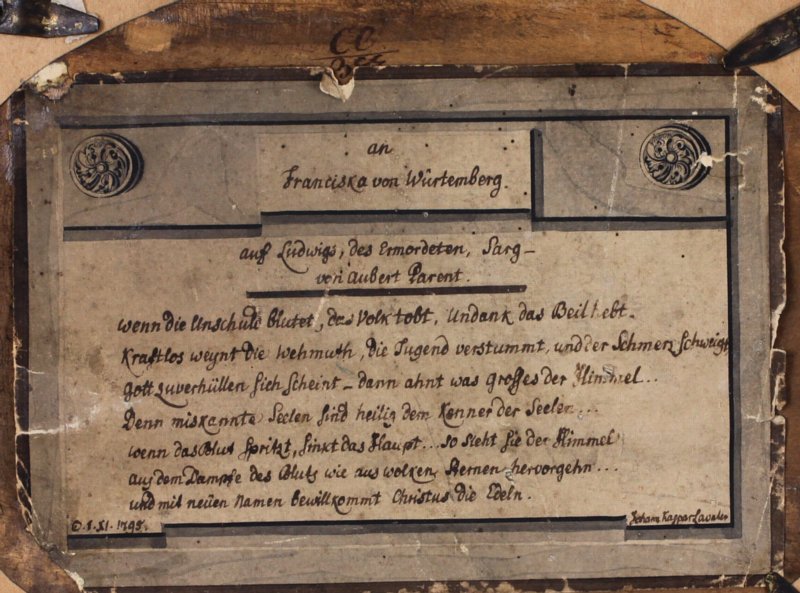 CC
an
Franciska von Würtemberg.
auf Ludwigs, des Ermordeten, Sarg –
von Aubert Parent.
wenn die Unschuld blutet, das Volk tobt, Undank das Beil hebt.
Kraftlos weynt die Wehmuth, die Tugend verstummt, und der Schmerz schweigt
gott zuverhüllen sich scheint – dann ahnt was grosses der Himmel...
Denn miskannte Seelen sind heilig dem Kenner der Seelen...
wenn das Blut spritzt, sinkt das Haupt... so sieht sie der Himmel
aus dem Dampfe des Bluts wie aus wolken, Sternen hervorgehn...
und mit neüen Namen bewillkommt Christus die Edeln.
XI. 1793.
Johann Kaspar Lavater